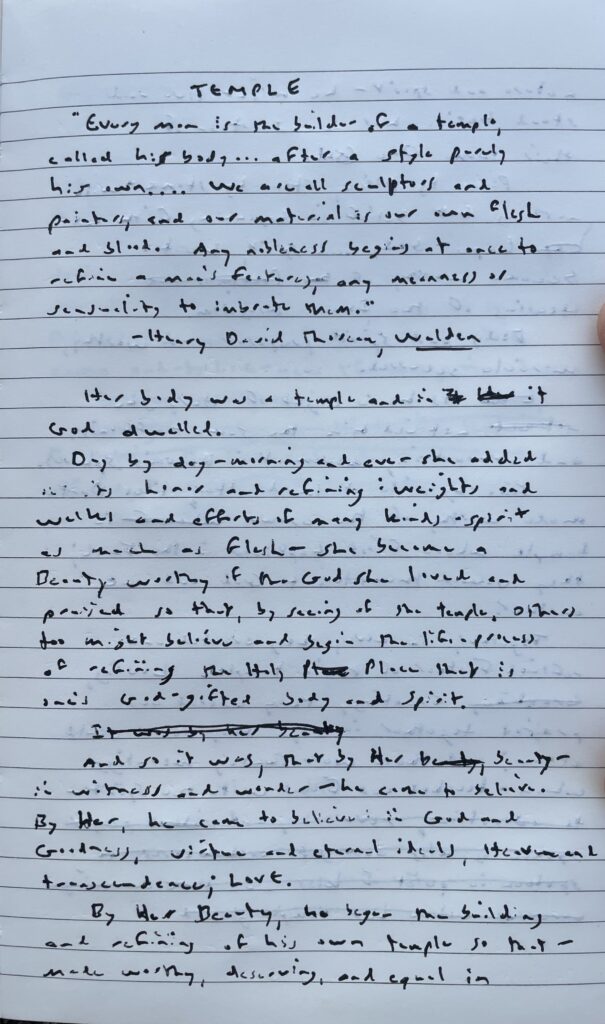 TEMPLE
"Every man is the builder of a temple,
called his body... after a style purely
his own.... We are all sculptors and
painters, and our material is our own flesh
and blood. Any nobleness begins at once to
refine a man's features, any meanness or
sensuality to imbrute them."
-Henry David Thoreau, Walden
Her body was a temple and in it
God dwelled.
Day by day-morning and eve-she added
in its honor and refining: weights and
walks and efforts of many kinds-spirit
as much as flesh-she became a
Beauty worthy of the God she loved and
praised so that, by seeing of the temple, others
too might believe and begin the life-process
of refining the Holy Place that is
one's God-gifted body and spirit.
It was by her beauty
And so it was, that by Her beauty, beauty-
in witness and wonder-he came to believe.
By Her, he came to believe: in God and
Goodness, virtue and eternal ideals, Heaven and
transcendence; Love.
By Her Beauty, he began the building
and refining of his own temple so that-
made worthy, deserving, and equal in